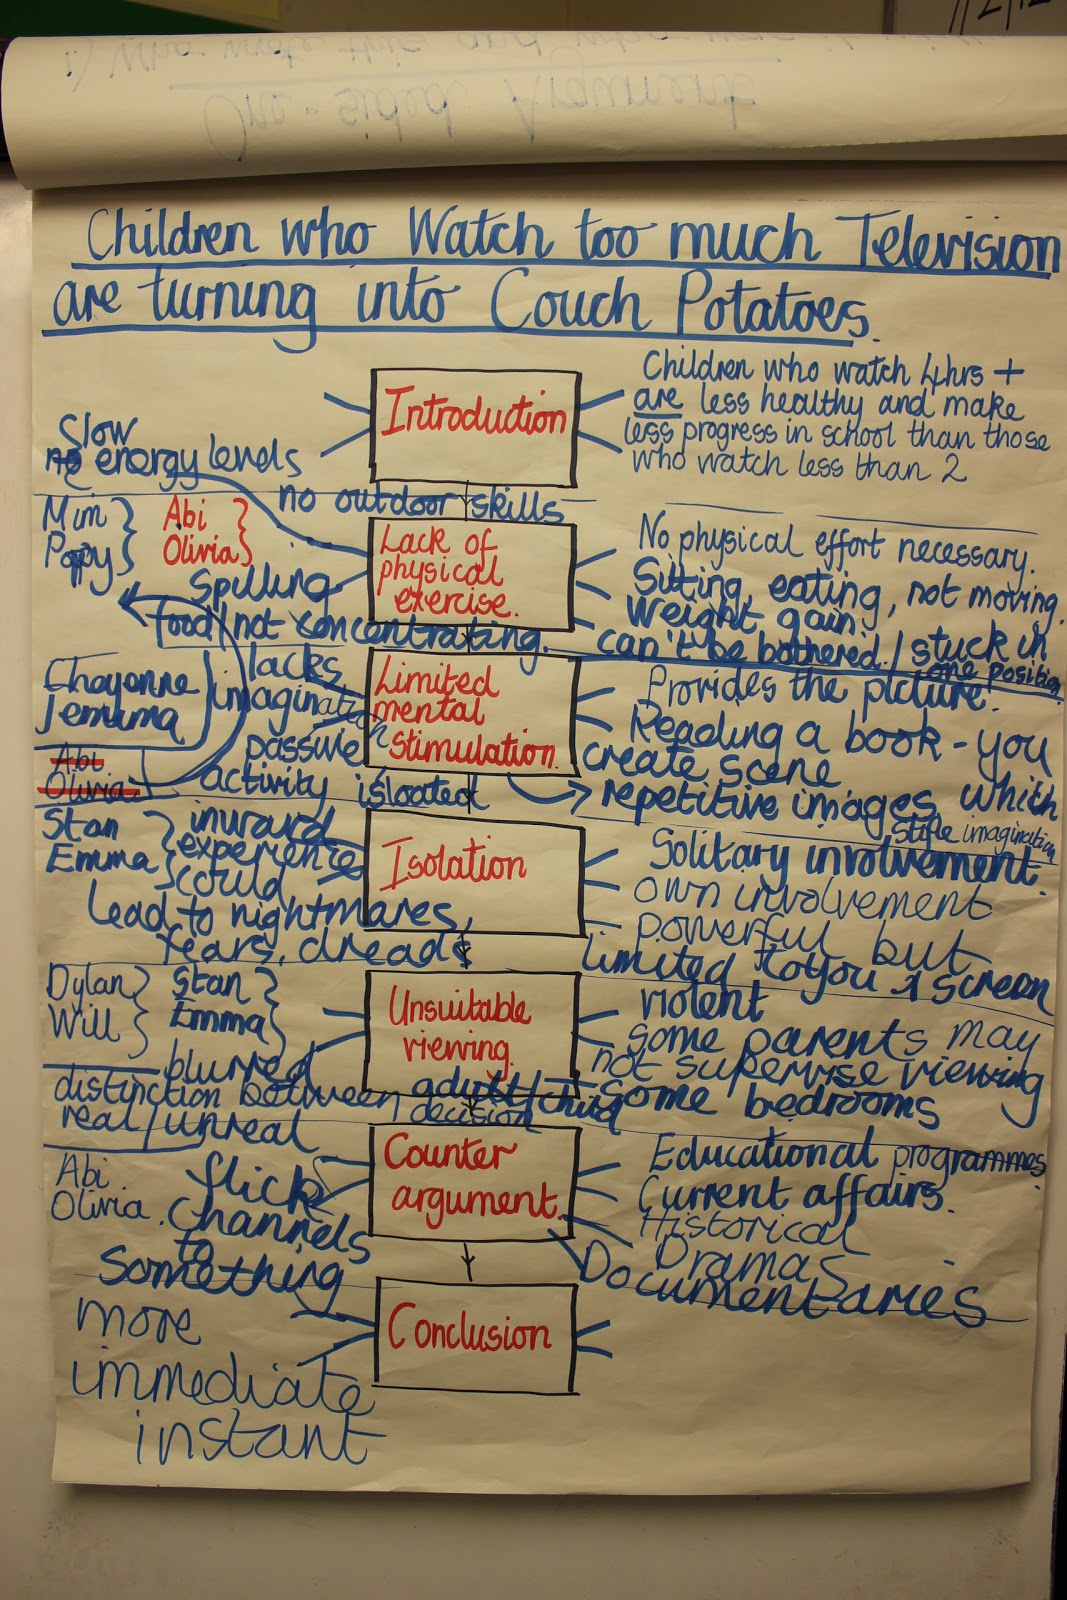 One-sided Argument
Children who Watch too much Television
are turning into Couch Potatoes.
Introduction
Children who watch 4hrs +
are less healthy and make
less progress in school than those
who watch less than 2
Slow
no energy levels
no outdoor skills
Mim
Poppy
Abi
Olivia
Lack of
physical
exercise.
Spilling
food/not concentrating.
No physical effort necessary.
Sitting, eating, not moving.
Weight gain.
can't be bothered./stuck in
one position
Cheyenne
Jemima
Abi
Olivia
lacks
imagination
passive
activity isloated
Limited
mental
stimulation.
Provides the picture.
Reading a book - you
create scene
repetitive images which
stifle imagination
Stan
Emma
inward
experience
could
Lead to nightmares,
fears, dreads
Isolation
Solitary involvement.
own involvement
powerful but
limited to you & screen
Dylan
Will
Stan
Emma
blurred
distinction between
real/unreal
Unsuitable
viewing.
adult/child
decision
violent
some parents may
not supervise viewing
some bedrooms
Abi
Olivia.
flick
channels
to
Something
more
immediate
instant
Counter
argument.
Educational programmes
Current affairs.
Historical
Dramas
Documentaries
Conclusion